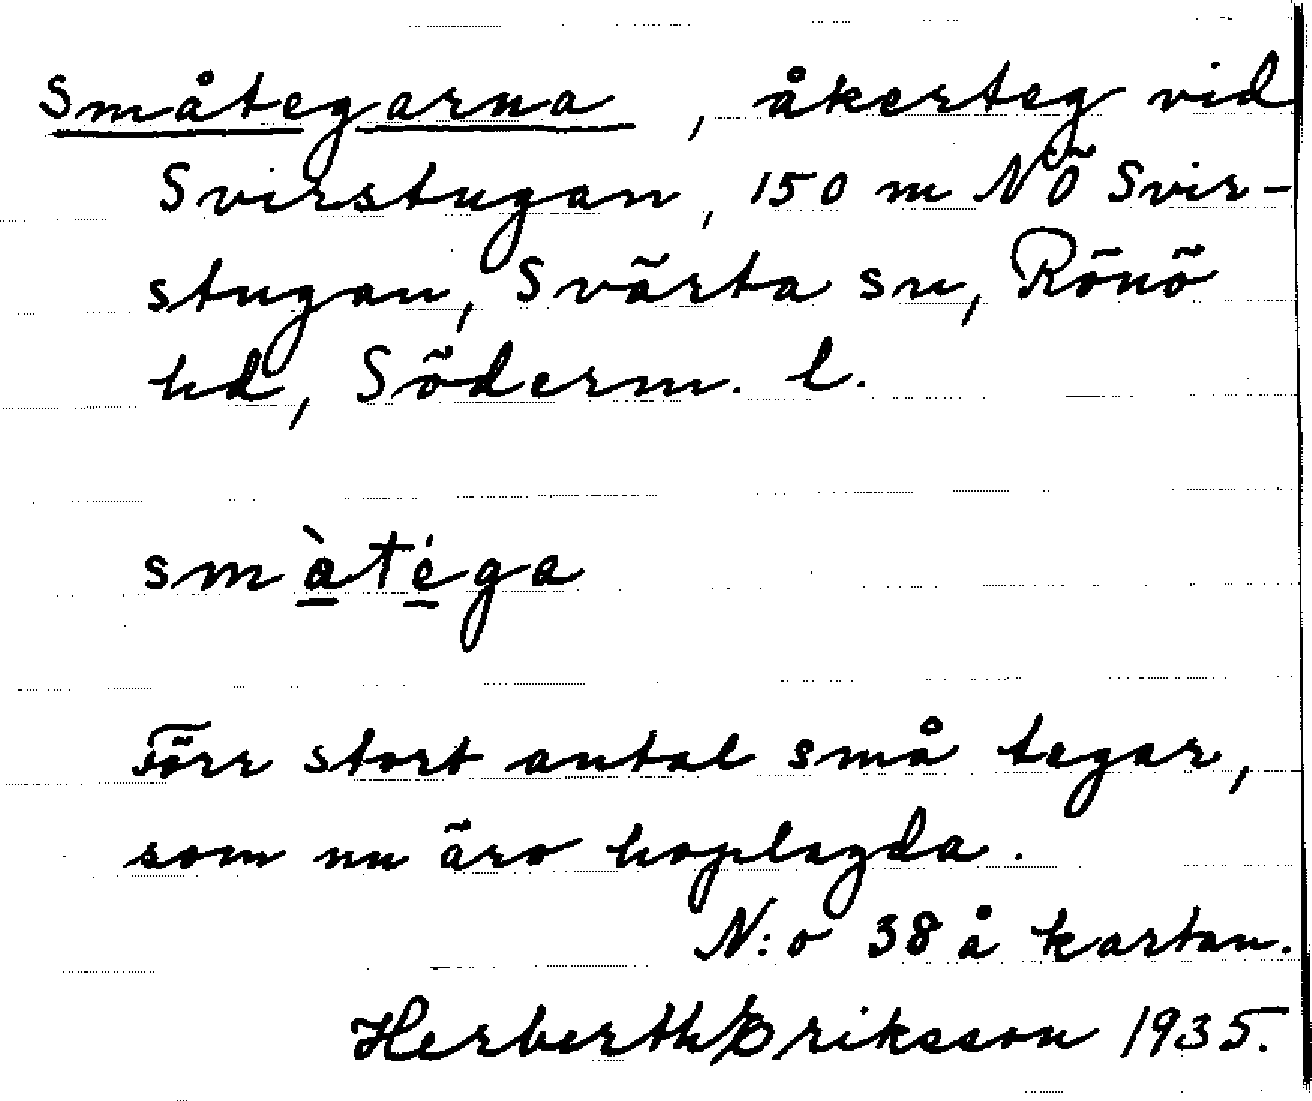 Småtegarna, åkerteg vid
Svirstugan, 150 m NÖ Svir-
stugan, Svärta sn, Rönö
hd, Söderm. l.
småtega
Förr stort antal små tegar,
som nu äro hoplagda.
N:o 38 å kartan.
Herberth Eriksson 1935.